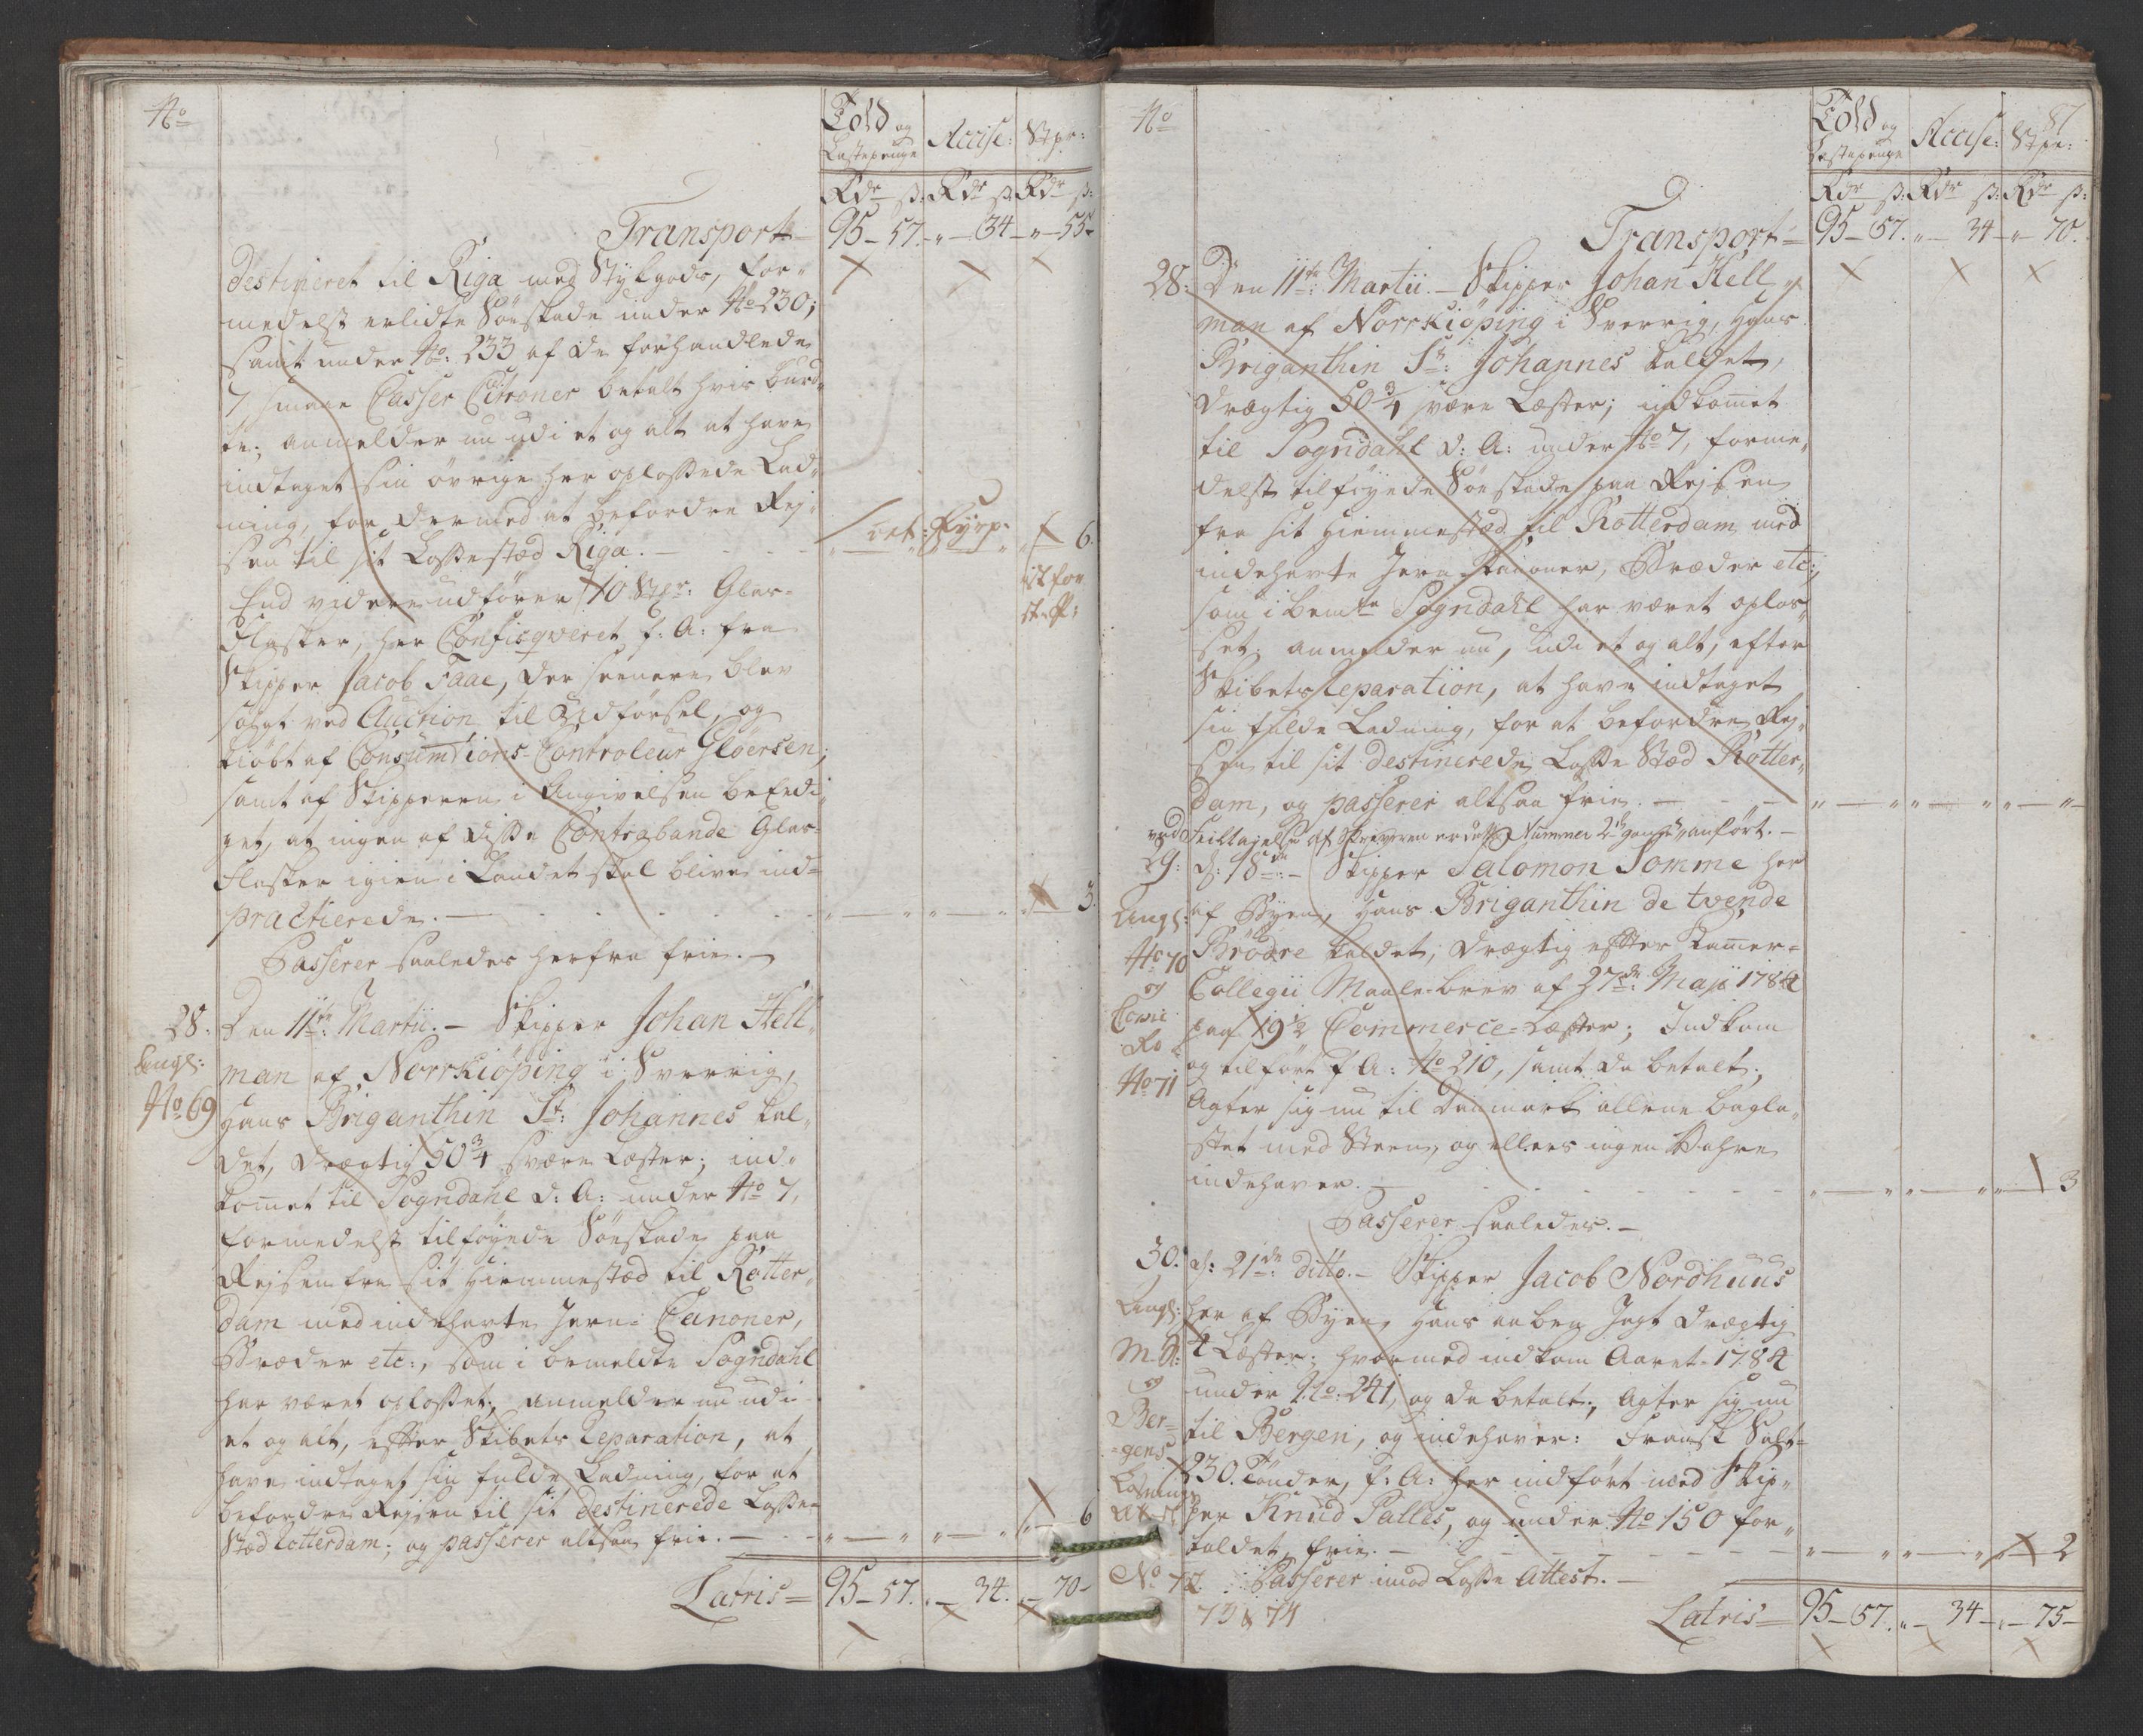 No
Told og Lastepenge Accise: Stpr:
Rdr ß: Rdr ß: Rdr ß:
Transport 95-57. „-34-„-55-
destineret til Riga med Stykgods, for„
medelst erlidte Söeskade under No 230;
samt under No: 233 af de forhandlede
7 smaae Casser Citroner betalt hvis burd„
te; anmelder nu udi et og alt at have
indtaget sin övrige her oplossede Lad„
ning, for dermed at befordre Rej„
sen til sit Lossestæd Riga. - „-„ „-„ „- 6.
End videre udförer 10 Glas-
Flasker, her Confisqveret f: A: fra
Skipper Jacob Faae, der senere blev
solgt ved Auction til Udförsel, og
kiöbt af Consumtions-Controleur Gloersen;
samt af Skipperen i Angivelsen beEedi„
get, at ingen af disse Contrabande Glas-
Flasker igien i Landet skal blive ind=
practicerede. - „-„ „-„ „- 3.
Passerer saaledes herfra frie. -
28. Den 11te Martii. - Skipper Johan Hell„
Angl: man af Norrkiöping i Sverrig,
No 69 hans Briganthin St: Johannes kal„
det, drægtig 50 3/4 svære Læster; ind„
kommet til Sogndahl d: A: under No 7,
formedelst tilföyede Söeskade paa
Rejsen fra sit Hiemmestæd til Rotter„
dam med indehavte Jern-Canoner,
Bræder etc:, som i bemeldte Sogndahl
har været oplosset; anmelder nu udi
et og alt, efter Skibets Reparation, at
have indtaget sin fulde Ladning, for at
befordre Rejsen til sit destinerede Losse-
Stæd Rotterdam; og passerer altsaa frie. - „-„ „-„ „- 6
Latris= 95-57. „-34. „-70-
87
No
Told og Lastepenge Accise: Stpr:
Rdr ß: Rdr ß: Rdr ß:
Transport= 95-57. „-34-„-70.
28: Den 11te: Martii. - Skipper Johan Hell„
man af Norrkiöping i Sverrig, hans
Briganthin St: Johannes kaldet,
drægtig 50 3/4 svære Læster; indkommet
til Sogndahl d: A: under No 7, forme„
delst tilföyede Söeskade paa Rejsen
fra sit Hiemmestæd til Rotterdam med
indehavte Jern Canoner, Bræder etc:,
som i bemte Sogndahl har været oplos„
set; anmelder nu, udi et og alt, efter
Skibets Reparation, at have indtaget
sin fulde Ladning, for at befordre Rej„
sen til sit destinerede Losse Stæd Rotter„
dam, og passerer altsaa frie. - „-„ „-„ „-„
ved Feiltagelse af Skriveren er dette Nummer 2de gange anfört. -
29: d: 18de: - Skipper Salomon Somme her
Angl: af Byen, hans Briganthin de tvende
No 70 Brödre kaldet, drægtig efter Kamer-
og Collegii Maale-brev af 27de: Maji 1784
paa 19 1/2 Commerce-Læster; Indkom
og tilfört f A: No 210, samt da betalt;
No 71 Agter sig nu til Danmark allene bagla„
stet med Steen, og ellers ingen Vahre
indehaver. - „-„ „-„ „- 3
Passerer saaledes. -
30. d: 21de: ditto. - Skipper Jacob Nordhuus
Angl: her af Byen, hans aaben Jagt drægtig
4 Læster; hvormed indkom Aaret 1784
og under No: 241, og da betalt; Agter sig nu
Ber= til Bergen, og indehaver: Fransk Salt-
=gens 230. Tönder, f: A: her indfört med Skip„
per Knud Palles, og under No 150 for„
toldet, frie. - „-„ „-„ „- 2
No 72 Passerer imod Losse Attest. -
73 & 74
Latris= 95-57. „-34-„-75-